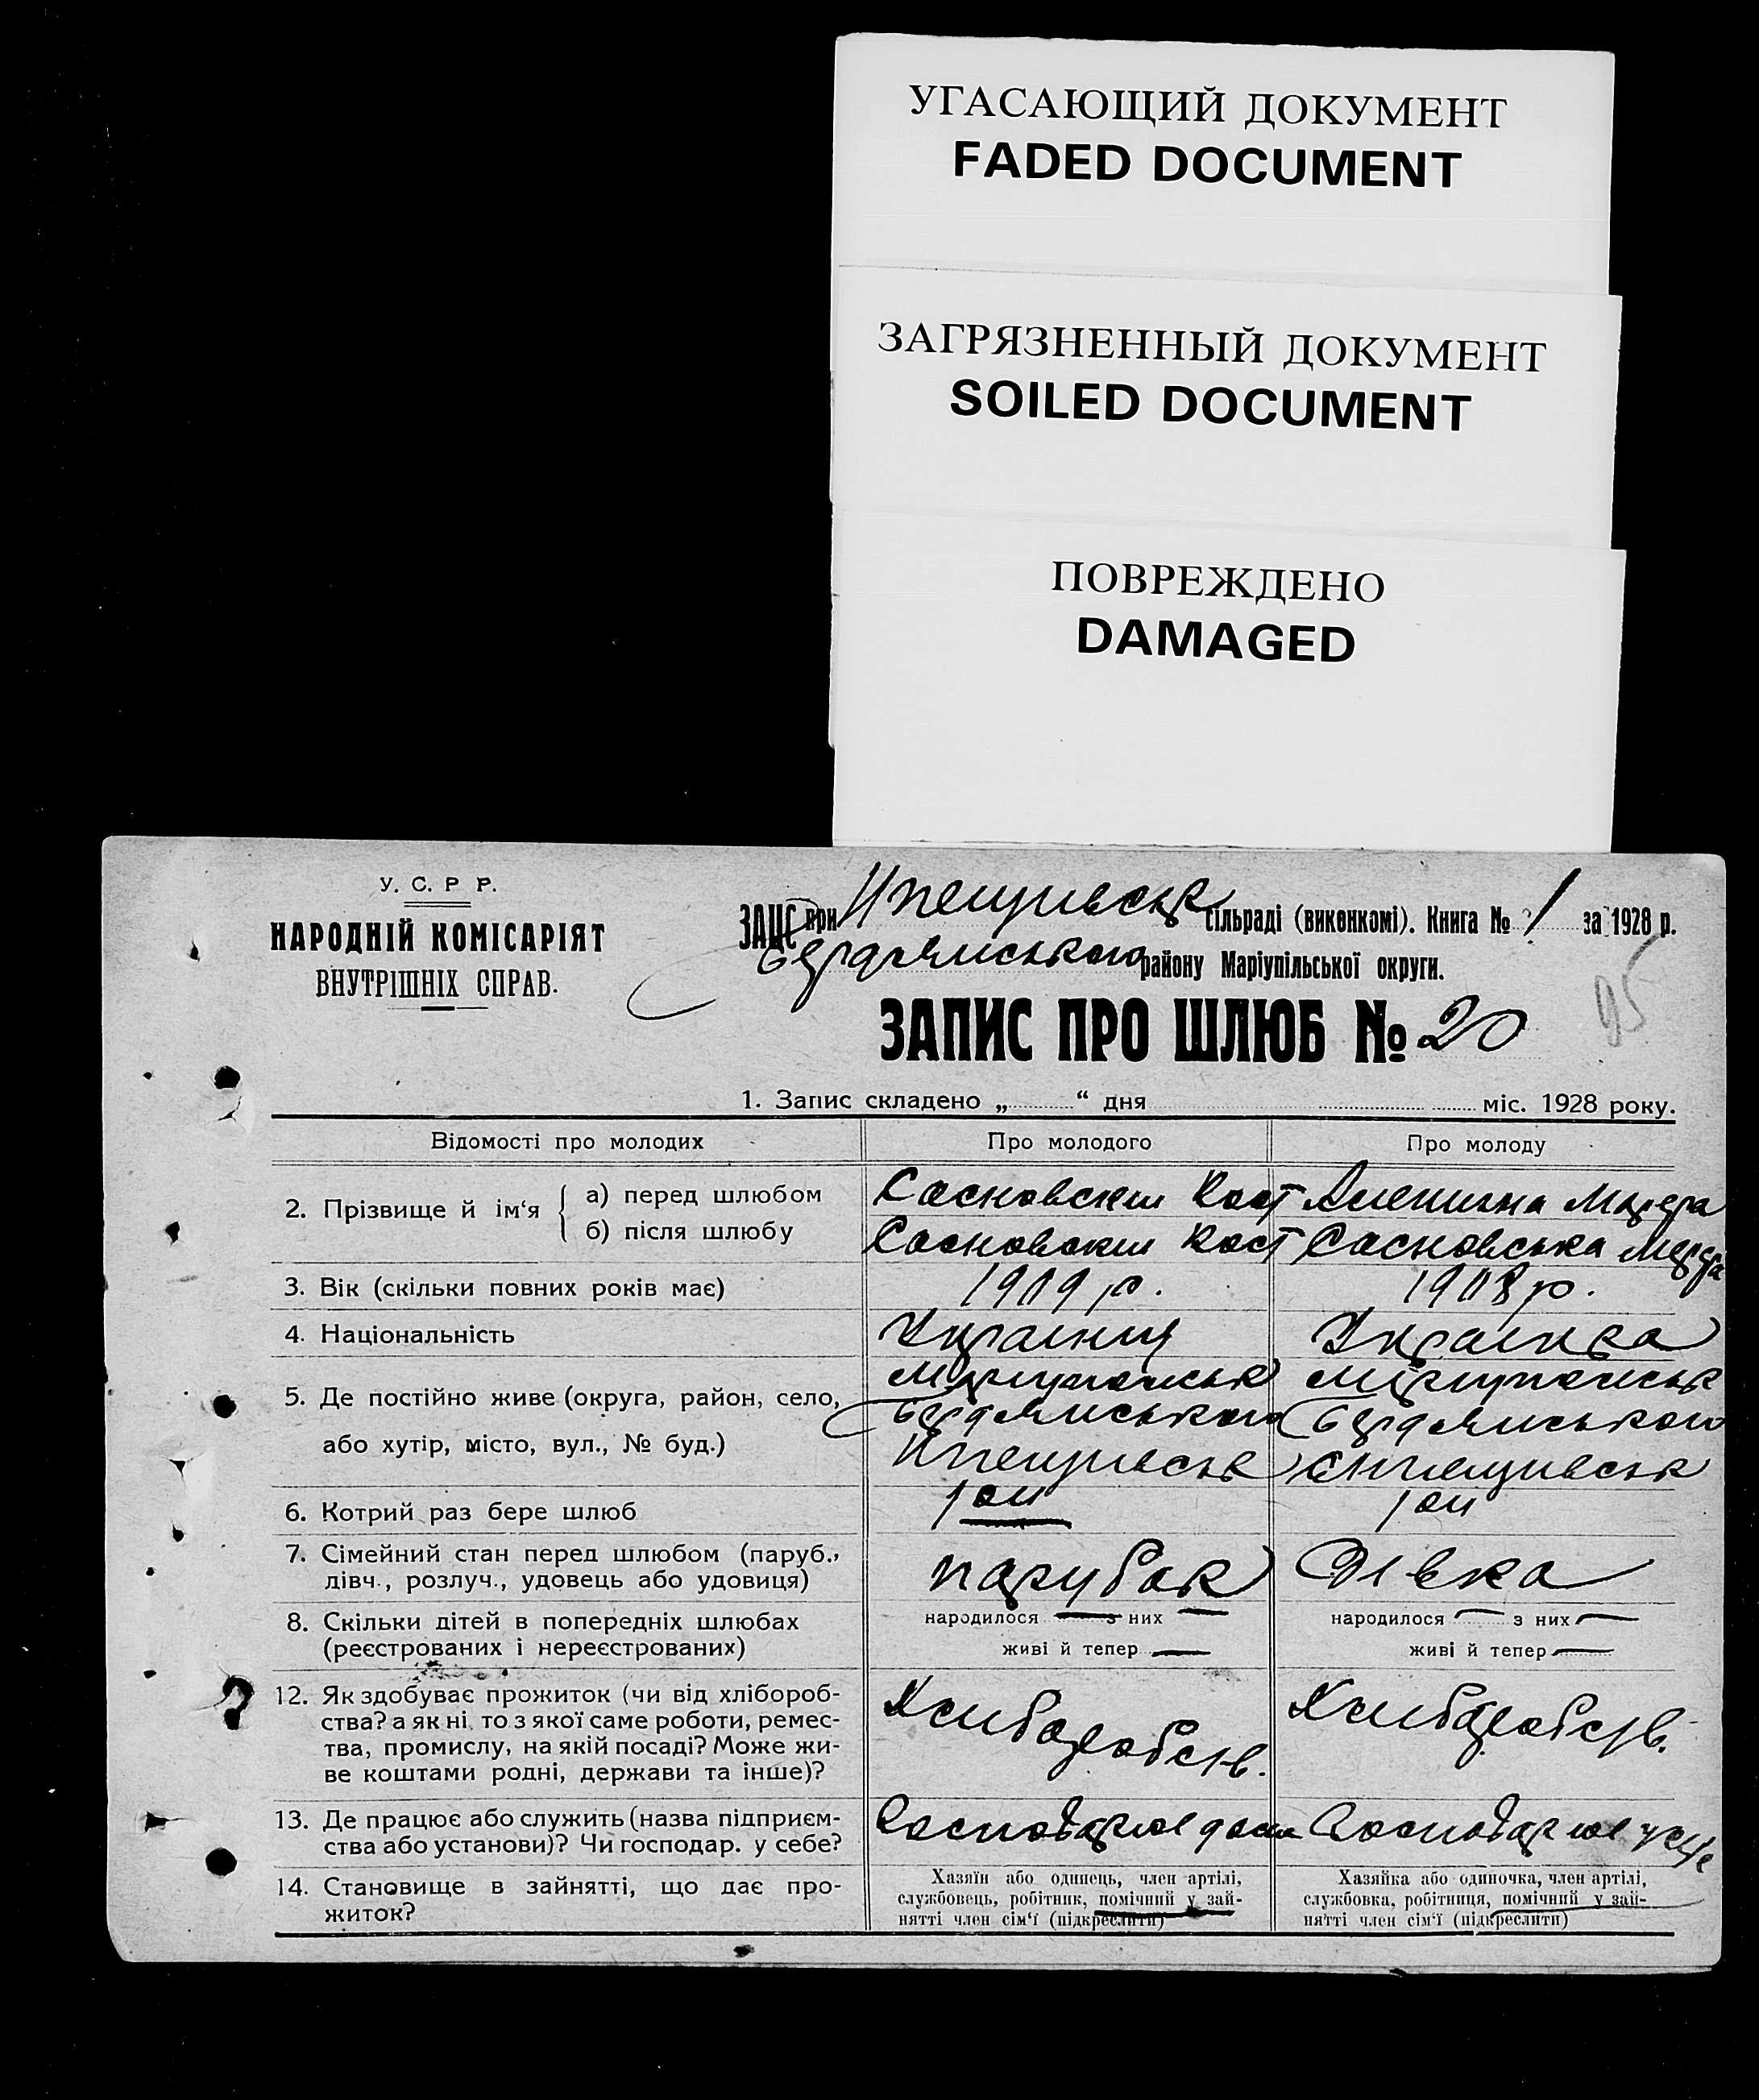 УГАСАЮЩИЙ ДОКУМЕНТ
FADED DOCUMENT
ЗАГРЯЗНЕННЫЙ ДОКУМЕНТ
SOILED DOCUMENT
ПОВРЕЖДЕНО
DAMAGED
У. С. Р Р.
НАРОДНІЙ КОМІСАРІЯТ
ВНУТРІШНІХ СПРАВ.
ЗАЦС при сільраді (виконкомі). Книга № 1 за 1928 р.
Бердянського району Маріупільської округи.
95
ЗАПИС ПРО ШЛЮБ № 20
1. Запис складено „ “ дня міс. 1928 року.
Відомості про молодих Про молодого Про молоду
2. Прізвище й ім‘я а) перед шлюбом Сосновский Кост
б) після шлюбу Сосновский Кост Сосновська
3. Вік (скільки повних років має) 1909 р. 1908 р.
4. Національність Українец Українка
5. Де постійно живе (округа, район, село, або хутір, місто, вул., № буд.)
Бердянського Бердянського
6. Котрий раз бере шлюб 1ий 1ий
7. Сімейний стан перед шлюбом (паруб., дівч., розлуч., удовець або удовиця) парубок Дівка
8. Скільки дітей в попередніх шлюбах (реєстрованих і нереєстрованих)
народилося — з них — живі й тепер —
народилося — з них — живі й тепер —
12. Як здобуває прожиток (чи від хлібороб-
ства? а як ні, то з якої саме роботи, ремес-
тва, промислу, на якій посаді? Може жи-
ве коштами родні, держави та інше)?
Хлиборобств.
Хлиборобств.
13. Де працює або служить (назва підприєм-
ства або установи)? Чи господар. у себе?
14. Становище в зайнятті, що дає про-
житок?
Хазяїн або одинець, член артілі,
службовець, робітник, помічний у зай-
нятті член сім‘ї (підкреслити)
Хазяйка або одиночка, член артілі,
службовка, робітниця, помічний у зай-
нятті член сім‘ї (підкреслити)